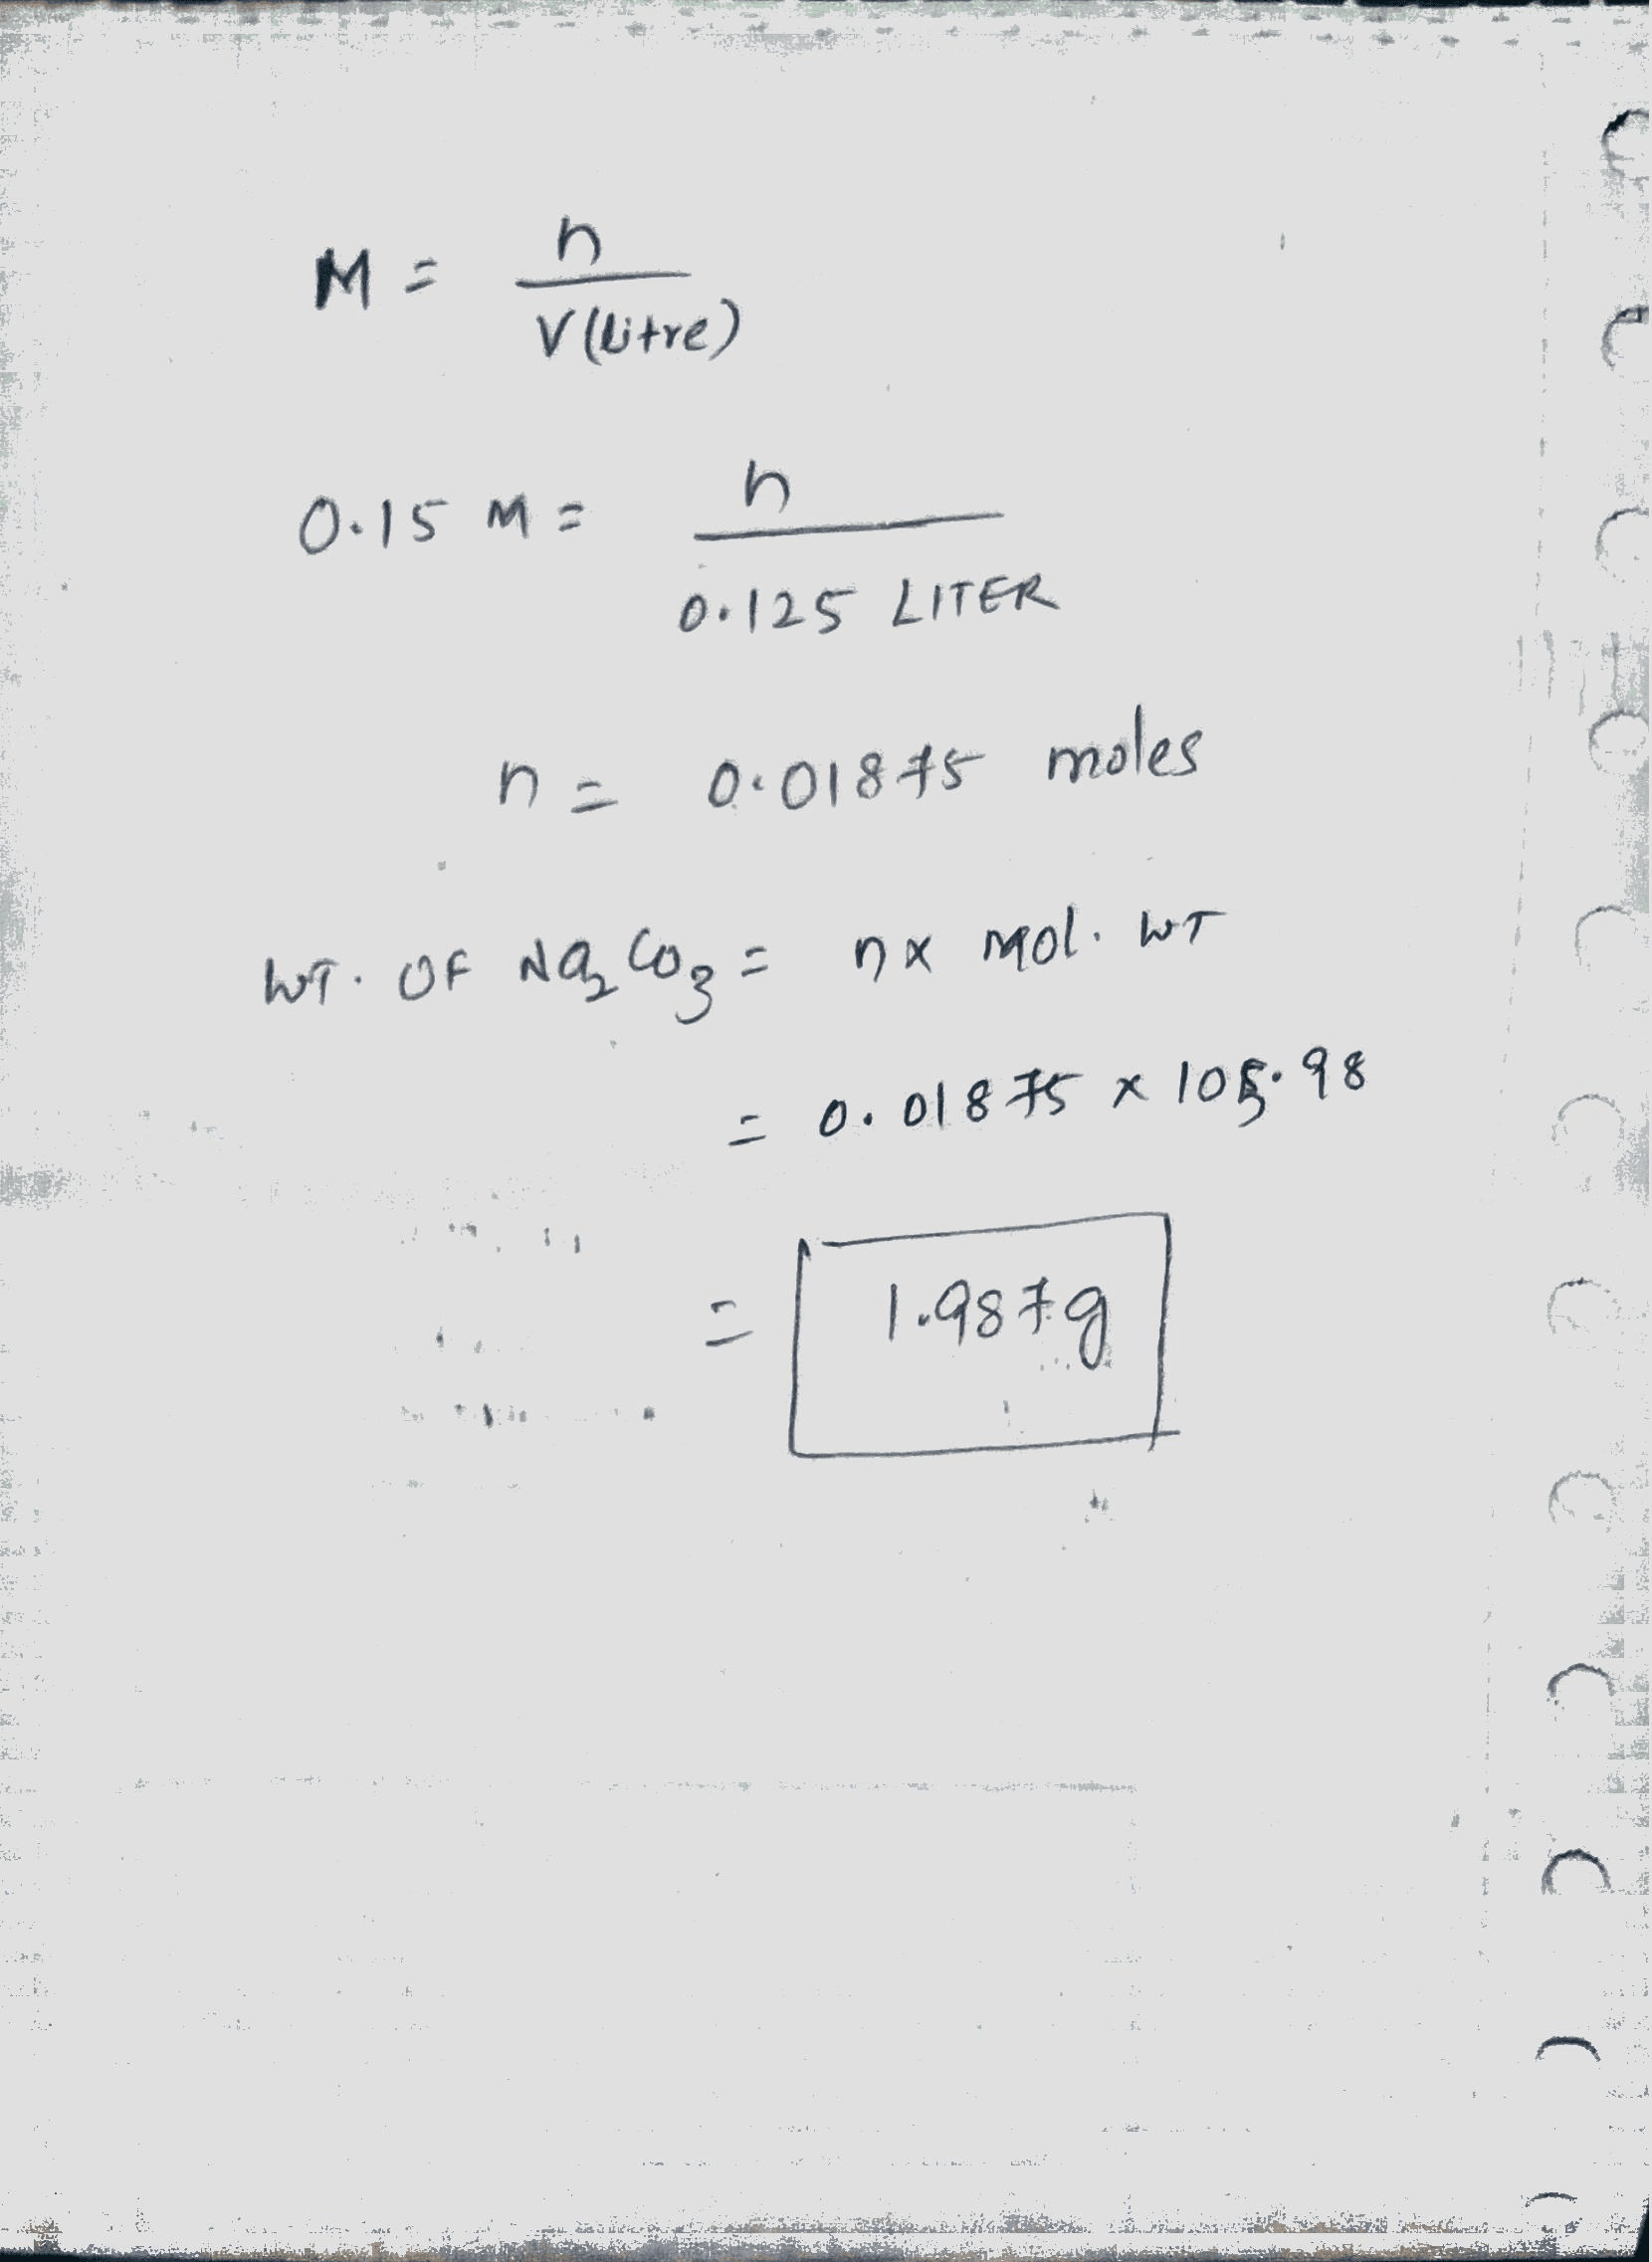 M = n / V (litre)
0.15 M = n / 0.125 LITER
n = 0.01875 moles
WT. OF Na2CO3 = n x mol. WT
= 0.01875 x 105.98
= 1.987g